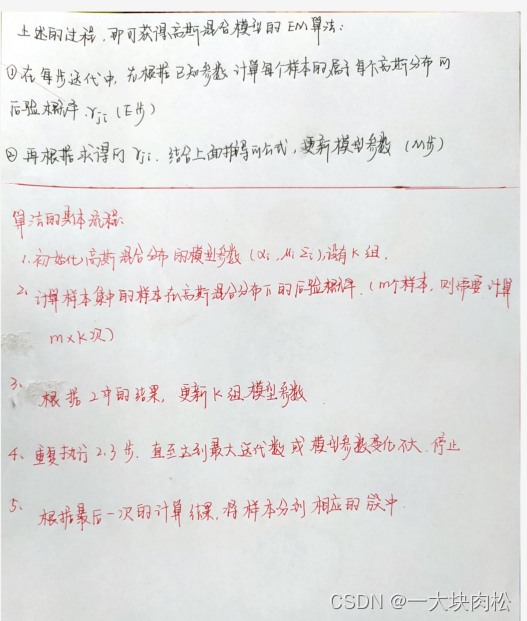 上述的过程,即可获得高斯混合模型的EM算法:
①在每步迭代中,先根据已知参数计算每个样本的属于每个高斯分布的
后验概率γji(E步)
②再根据求得的γji,结合上面推得的公式,更新模型参数(M步)
算法的具体流程:
1.初始化高斯混合分布的模型参数(αi,μi Σi),设有K组.
2、计算样本集中的样本在高斯混合分布下的后验概率.(m个样本,则需要计算
m×K次)
3、根据2中的结果,更新K组模型参数
4、重复执行2.3步.直至达到最大迭代数或模型参数变化不大.停止
5、根据最后一次的计算结果,将样本分到相应的簇中.
CSDN @一大块肉松